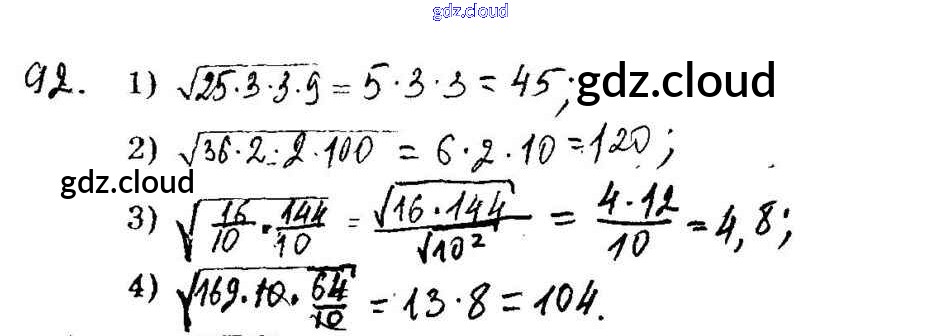 gdz.cloud
92. 1) √25·3·3·9 = 5·3·3 = 45; gdz.cloud
2) √36·2·2·100 = 6·2·10 = 120;
gdz.cloud
3) √16/10 · 144/10 = √16·144/√10² = 4·12/10 = 4,8;
4) √169·10·64/10 = 13·8 = 104.